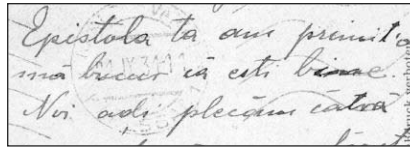 Epistola ta am primit'o
mă bucur că esti bine.
Noi adi plecăm cătră